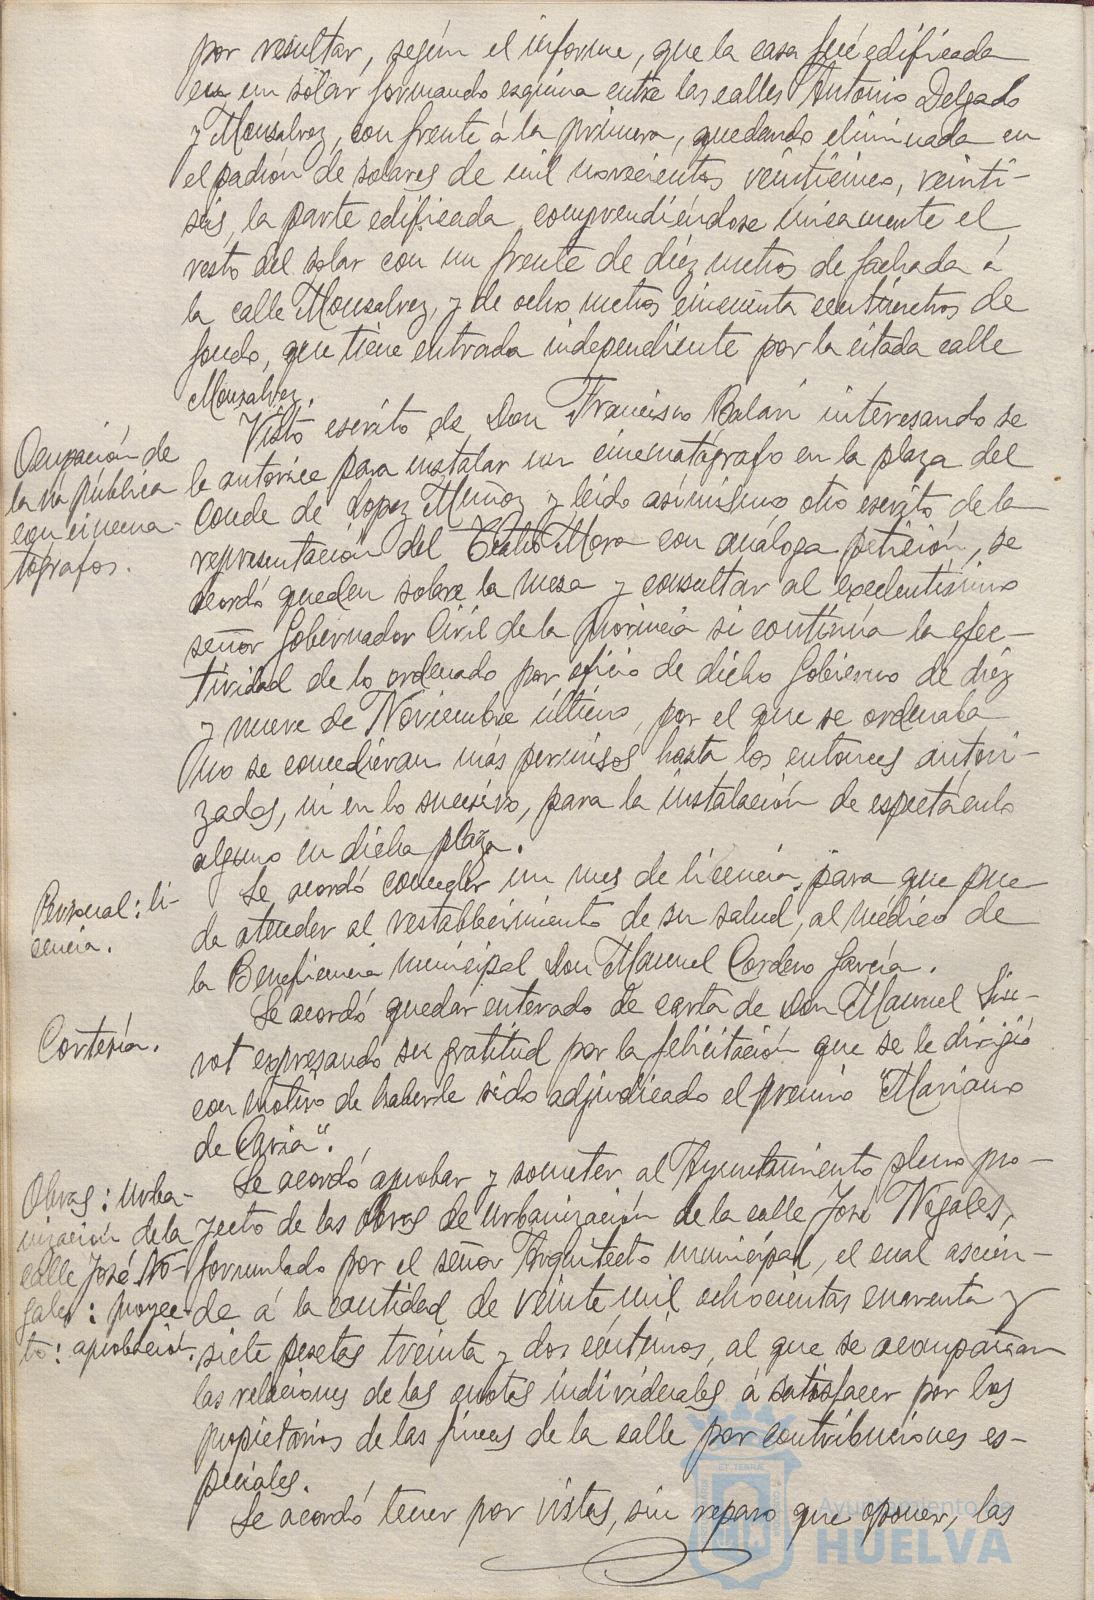 por resultar, según el informe, que la casa fué edificada
en un solar formando esquina entre las calles Antonio Delgado
y Monsalvez, con frente á la primera, quedando eliminada en
el padrón de solares de mil novecientos veinticinco, veinti-
seis, la parte edificada, comprendiéndose únicamente el
resto del solar con un frente de diéz metros de fachada á
la calle Monsalvez, y de ocho metros cincuenta centímetros de
fondo, que tiene entrada independiente por la citada calle
Monsalvez.
Ocupación de
la via pública
con cinema-
tógrafos.
Visto escrito de Don Francisco Balari interesando se
le autorice para instalar un cinematógrafo en la plaza del
Conde de Lopez Muñoz y leido asimismo otro escrito de la
representación del Teatro Mora con análoga petición, se
acordó queden sobre la mesa y consultar al excelentísimo
señor Gobernador Civil de la provincia si continúa la efec-
tividad de lo ordenado por oficio de dicho Gobierno de diéz
y nueve de Noviembre último, por el que se ordenaba
no se concedieran más permisos hasta los entonces autori-
zados, ni en lo sucesivo, para la instalación de espectáculo
alguno en dicha plaza.
Personal: li-
cencia.
Se acordó conceder un mes de licencia, para que pue-
da atender al restablecimiento de su salud, al médico de
la Beneficencia municipal Don Manuel Cordero García.
Cortesía.
Se acordó quedar enterado de carta de Don Manuel Siu-
rot expresando su gratitud por la felicitación que se le dirigió
con motivo de haberle sido adjudicado el premio "Mariano
de Cavia".
Obras: urba-
nización de la
calle José No-
gales: proyec-
to: aprobación.
Se acordó aprobar y someter al Ayuntamiento pleno pro-
yecto de las obras de urbanización de la calle José Nogales,
formulado por el señor Arquitecto municipal, el cual ascien-
de á la cantidad de veinte mil ochocientas cuarenta y
siete pesetas treinta y dos céntimos, al que se acompañan
las relaciones de las cuotas individuales á satisfacer por los
propietarios de las fincas de la calle por contribuciones es-
peciales.
Se acordó tener por vistas, sin reparo que oponer, las
Ayuntamiento de
HUELVA